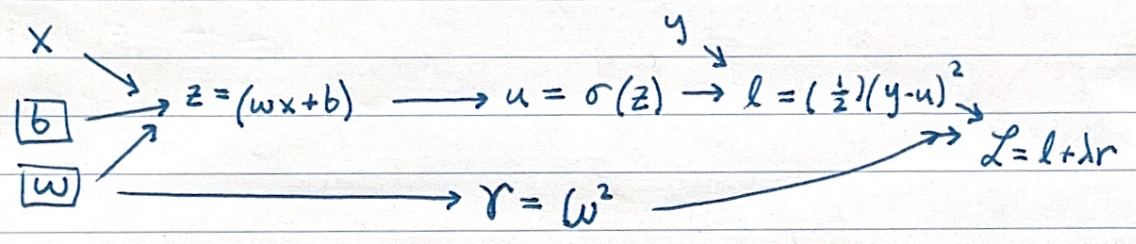 x
y
b
z = (wx+b) → u = σ(z) → l = (½)(y-u)²
L = l + λr
w
r = w²